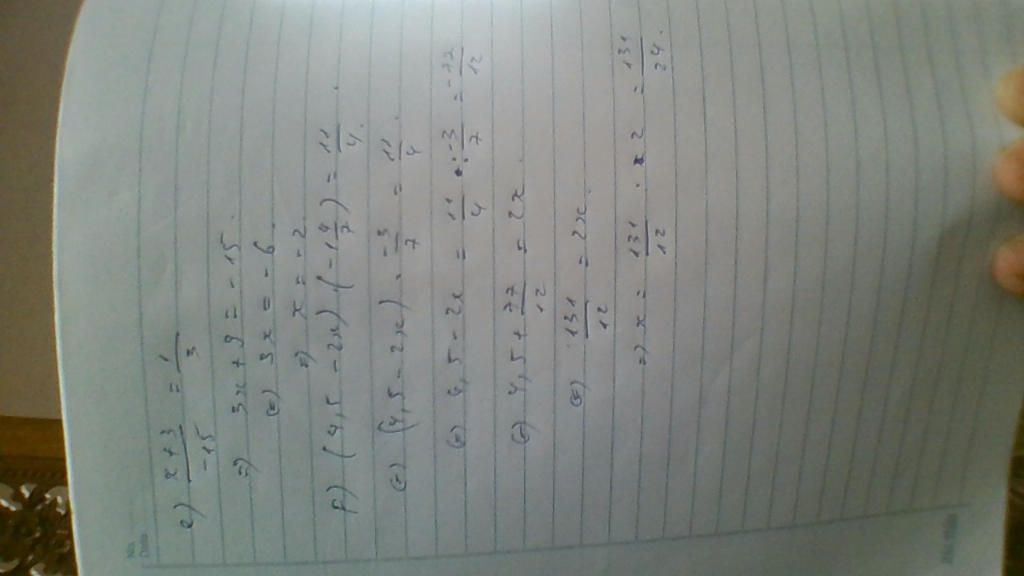 No.
Date
e) x+3/-15 = 1/3
=> 3x + 9 = -15.
(=) 3x = -6.
=) x = -2.
f) (4,5 - 2x) (-1 4/7) = 11/4.
(=) (4,5 - 2x) . -3/7 = 11/4.
(=) 4,5 - 2x = 11/4 : -3/7 = -77/12
(=) 4,5 + 77/12 = 2x.
(=) 131/12 = 2x.
=) x = 131/12 . 2 = 131/24.